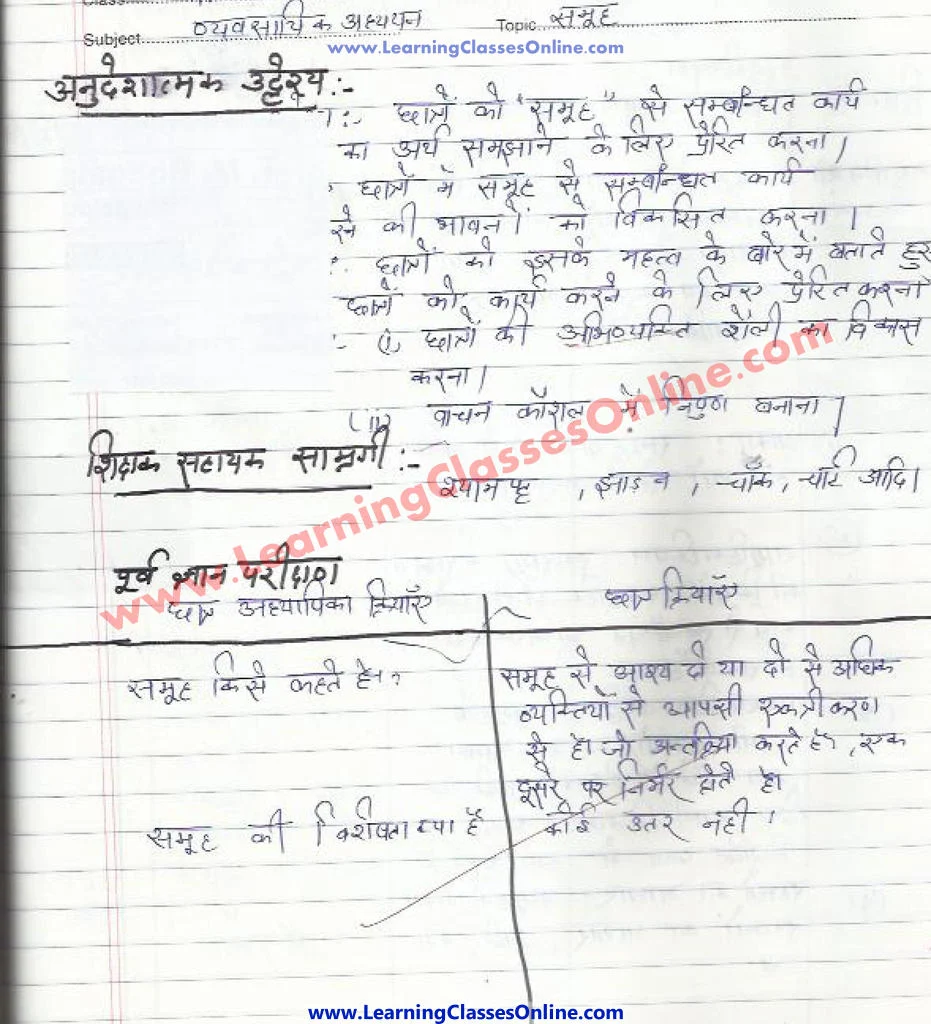 Subject व्यवसायिक अध्ययन Topic समूह
www.LearningClassesOnline.com
अनुदेशात्मक उद्देश्य :-
1:- छात्रों को "समूह" से सम्बन्धित कार्य
का अर्थ समझाने के लिए प्रेरित करना।
छात्रों में समूह से सम्बन्धित कार्य
की भावनों को विकसित करना।
: छात्रों को इसके महत्व के बारे में बताते हुए
छात्रों को कार्य करने के लिए प्रेरित करना
:- (i) छात्रों की अभिव्यक्ति शैली का विकास
करना।
(ii) वाचन कौशल में निपुण बनाना।
शिक्षक सहायक सामग्री :-
श्यामपट्ट, झाडन, चॉक, चार्ट आदि।
www.LearningClassesOnline.com
पूर्व ज्ञान परीक्षण
छात्र अध्यापिका क्रियाएँ
छात्र क्रियाएँ
समूह किसे कहते है?
समूह से आश्य दो या दो से अधिक
व्यक्तियों से आपसी एकत्रीकरण
से है। जो अन्तक्रिया करते है, एक
दूसरे पर निर्भर होते है।
समूह की विशेषता क्या है
कोई उतर नही।
www.LearningClassesOnline.com